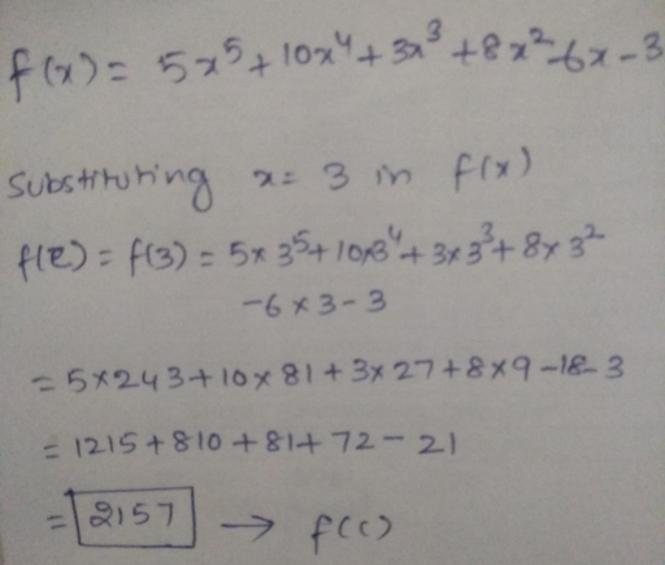 f(x) = 5x⁵ + 10x⁴ + 3x³ + 8x² - 6x - 3
Substituting x = 3 in f(x)
f(c) = f(3) = 5 × 3⁵ + 10×3⁴ + 3×3³ + 8 × 3²
- 6 × 3 - 3
= 5×243 + 10×81 + 3×27 + 8×9 - 18 - 3
= 1215 + 810 + 81 + 72 - 21
= 2157 → f(c)